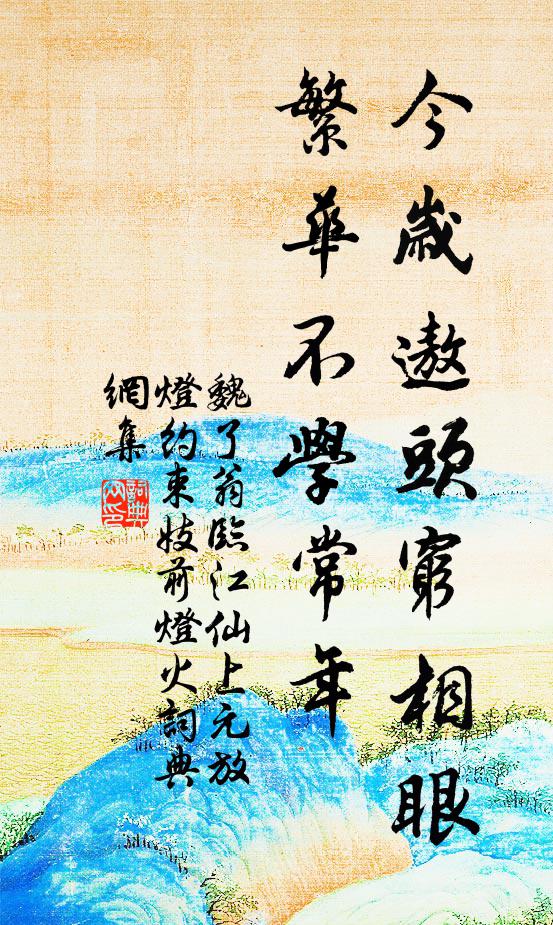 今歲遨頭窮相眼
繁華不學常年
魏了翁臨江仙上元放
燈約束妓前燈火詞典
網集